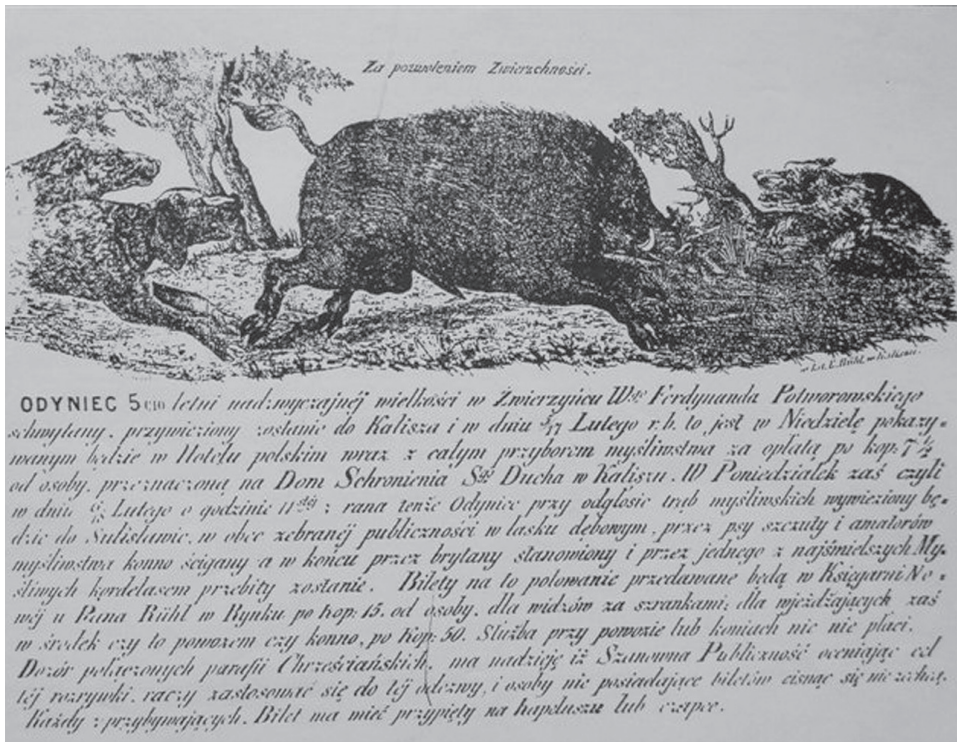 Za pozwoleniem Zwierzchności.
w Lit. L. Rühl, w Kaliszu.
ODYNIEC 5CIO letni nadzwyczajnéj wielkości w Zwierzyńcu Wgo Ferdynanda Potworowskiego
schwytany, przywieziony zostanie do Kalisza i w dniu 5/17 Lutego r.b. to jest w Niedzielę pokazy-
wanym będzie w Hotelu polskim wraz z całym przyborem myśliwstwa za opłatą po kop: 7 1/2
od osoby, przeznaczoną na Dom Schronienia Sgo Ducha w Kaliszu. W Poniedziałek zaś czyli
w dniu Lutego o godzinie 11stéj z rana tenże Odyniec przy odgłosie trąb myśliwskich wywieziony bę-
dzie do Sulisławic, w obec zebranéj publiczności w lasku dębowym, przez psy szczuty i amatorów
myśliwstwa konno ścigany a w końcu przez brytany stanowiony i przez jednego z najśmielszych My-
śliwych kordelasem przebity zostanie. Bilety na to polowanie przedawane będą w Księgarni No-
wéj u Pana Rühl w Rynku, po kop: 15. od osoby, dla widzów za szrankami; dla wjeżdżających zaś
w środek czy to powozem czy konno, po Kop: 50. Służba przy powozie lub koniach nic nie płaci.
Dozór połączonych parafii Chrześciańskich, ma nadzieję iż Szanowna Publiczność oceniając cel
téj rozrywki, raczy zastosować się do téj odezwy, i osoby nie posiadające biletów cisnąć się nie zechcą.
Każdy z przybywających, Bilet ma mieć przypięty na kapeluszu lub czapce.